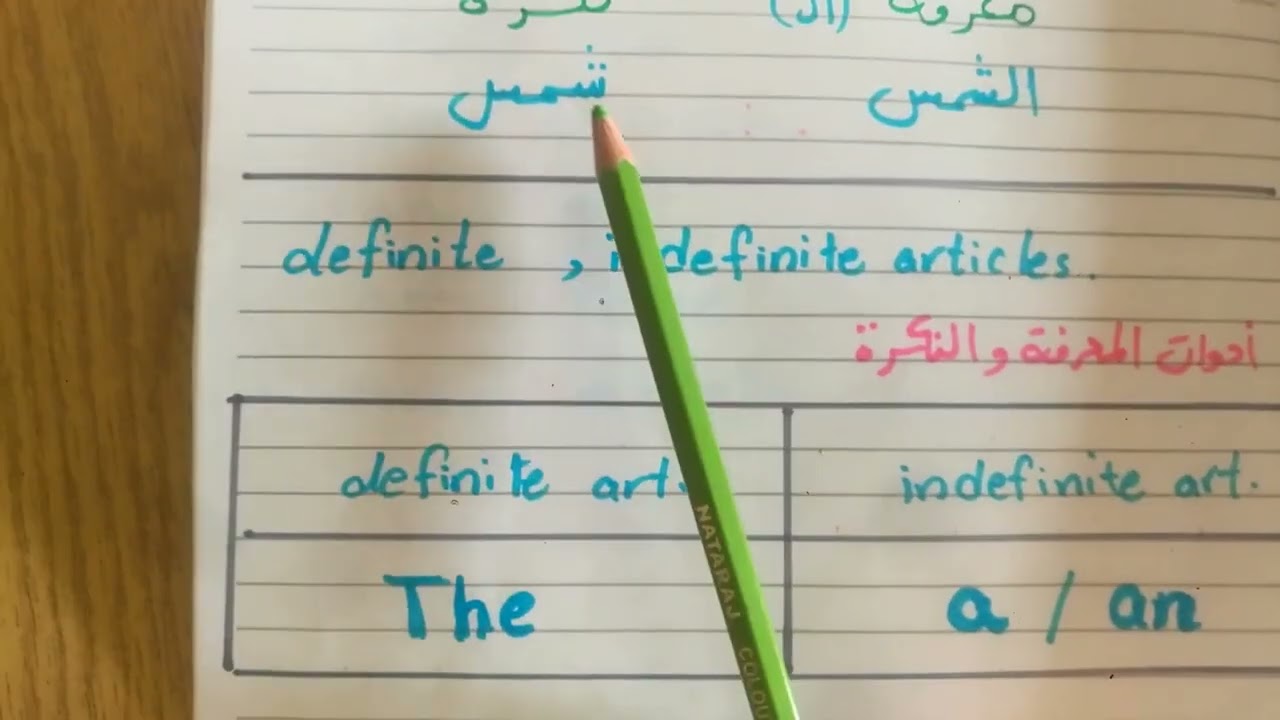 معرفة (ال) نكرة
الشمس شمس
definite , indefinite articles.
أدوات المعرفة والنكرة
definite art. indefinite art.
The a / an
NATARAJ COLOU